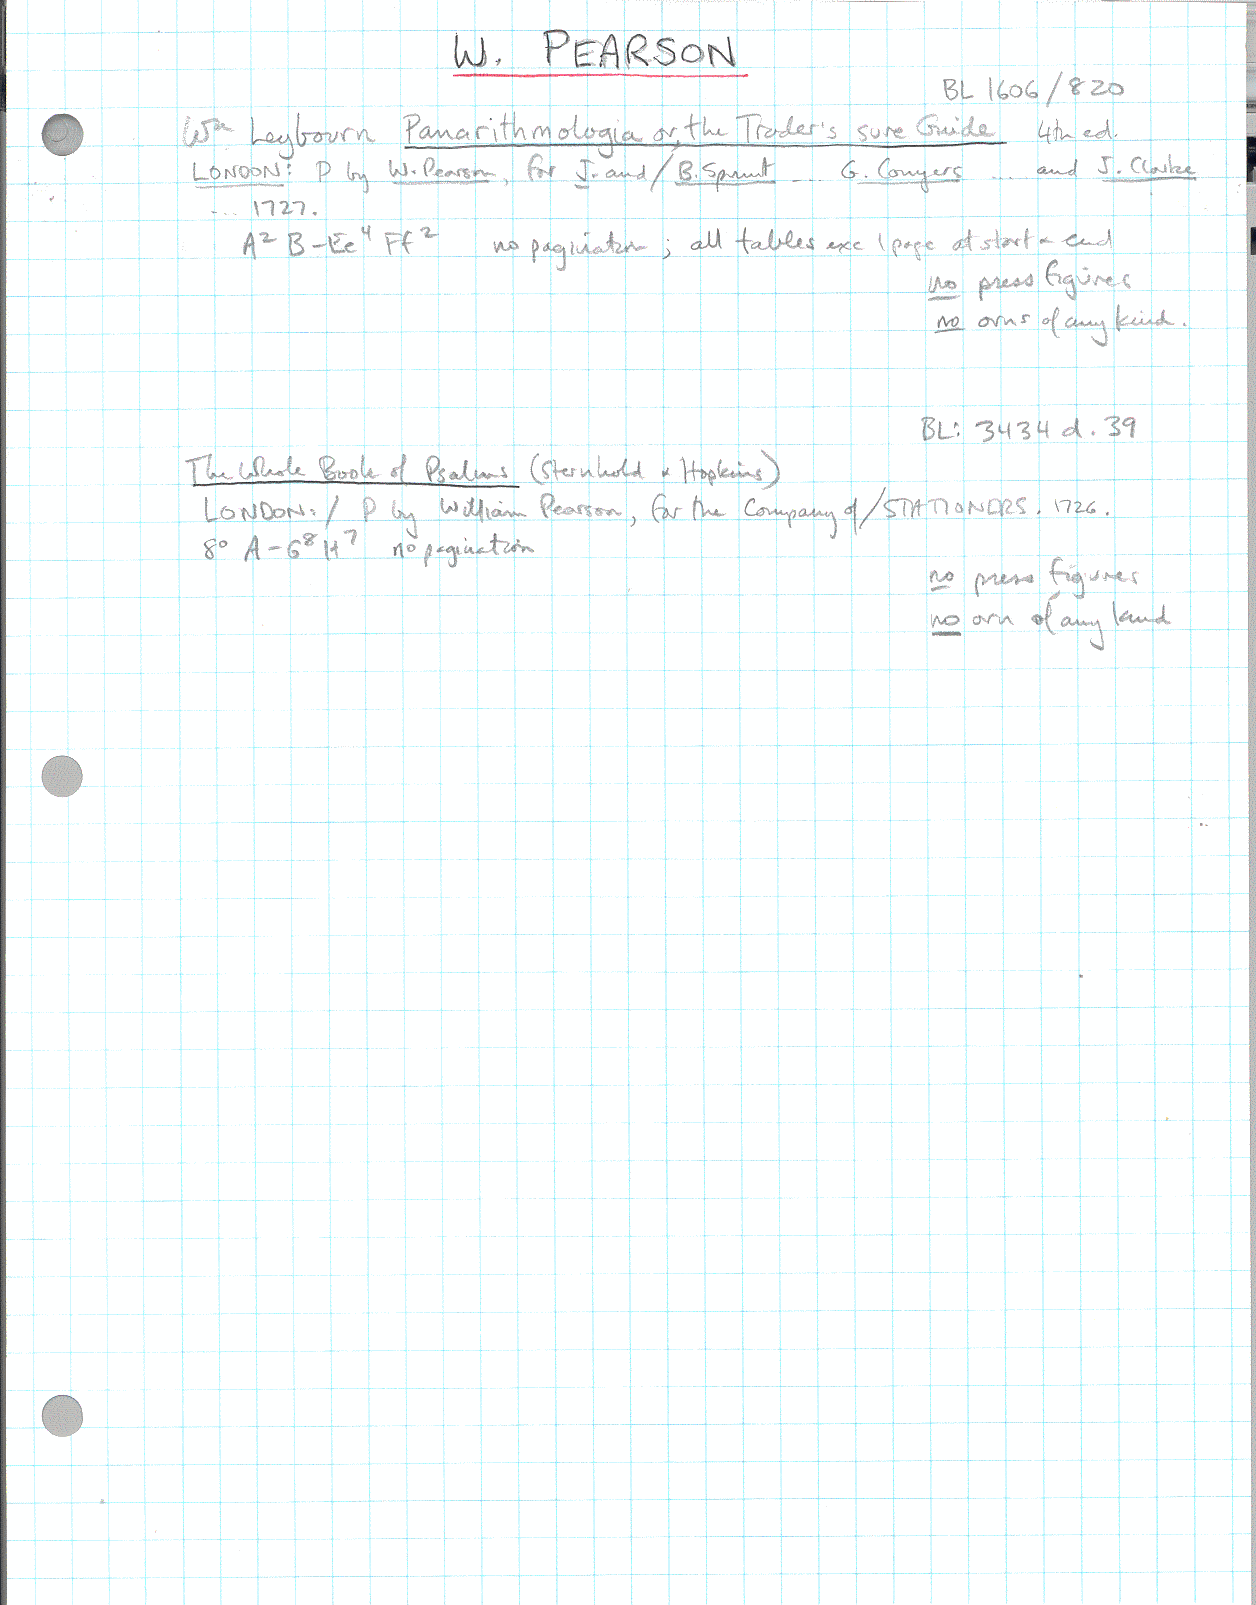 W. PEARSON
BL 1606/820
Wm Leybourn Panarithmologia or the Trader's sure Guide 4th ed.
LONDON: P by W. Pearson, for J. and/B. Sprint ... G. Conyers ... and J. Clarke
... 1727.
A² B-Ee⁴ Ff² no pagination; all tables exc 1 page at start & end
no press figures
no orns of any kind.
BL: 3434 d. 39
The Whole Book of Psalms (Sternhold & Hopkins)
LONDON:/ P by William Pearson, for the Company of/STATIONERS. 1726.
8° A-G⁸ H⁷ no pagination
no press figures
no orn of any kind